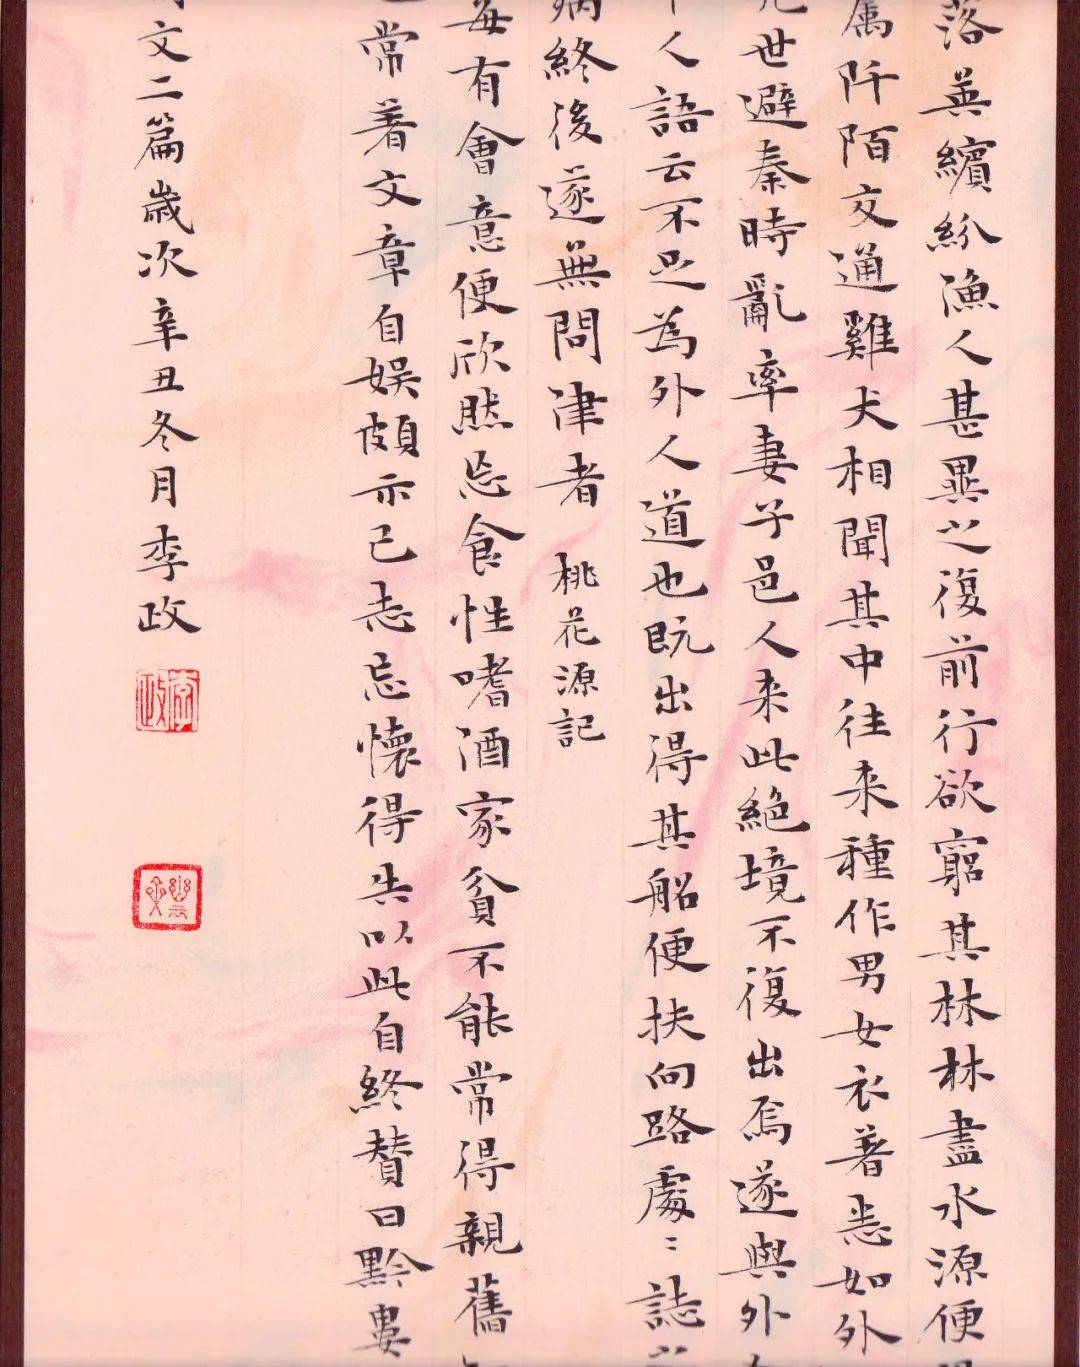 落英繽紛漁人甚異之復前行欲窮其林林盡水源便
属阡陌交通雞犬相聞其中往来種作男女衣著悉如外
世避秦時亂率妻子邑人来此絕境不復出焉遂與外
人語云不足為外人道也既出得其船便扶向路處：誌
病終後遂無問津者 桃花源記
每有會意便欣然忘食性嗜酒家貧不能常得親舊
常著文章自娱頗示己志忘懷得失以此自終賛曰黔婁
文二篇歲次辛丑冬月李政
李政